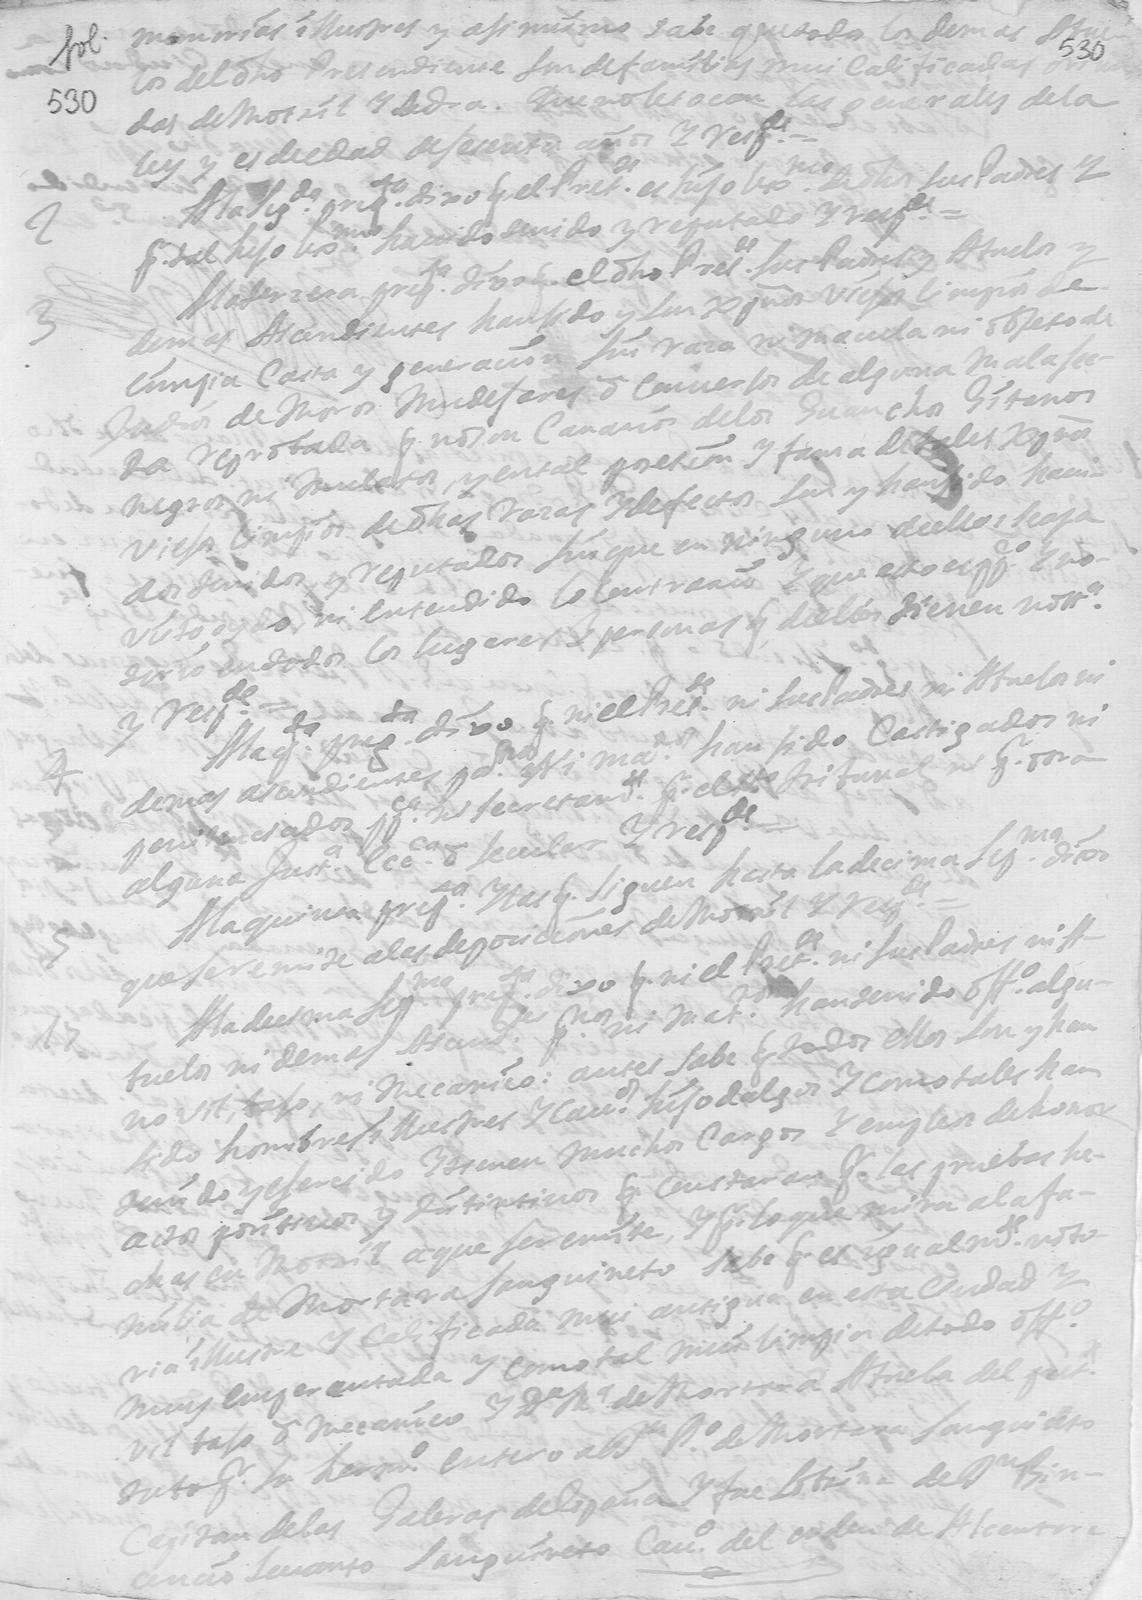 fol. 530
530
memorias illustres y asi mismo sabe que todos los demas Abue-
los del dho Pretendiente son de familias mui Calificadas
das de Motril y Adra. Que no le tocan las generales de la
ley y es de edad de sesenta años y resp.de =
2 A la seg.da preg.ta dixo q. el Pret.te es hijo lex.mo de dhos sus Padres y
p. tal hijo lex.mo ha sido tenido y reputado y resp.de =
3 A la tercera preg.ta dixo q. el dho Pret.te sus Padres y Abuelos y
demas Ascendientes han sido y son xpnos viejos limpios de
limpia Casta y generacion sin raza ni macula ni objeto de
Judios de Moros Mudejares o Conversos de alguna mala sec-
ta reprobada q. no son Canarios de los Guanchos Gitanos
negros ni mulatos, y en tal posesion y fama de tales xpnos
viejos limpios de dhas razas y defectos son y han sido havi-
dos tenidos y reputados sin que en ninguno de ellos haya
visto oydo ni entendido lo contrario y que esto es pp.co y no-
torio en todos los lugares y personas q. de ellos tienen not.a
y resp.de =
4 A la q.ta preg.ta dixo q. ni el Pret.te ni sus Padres ni Abuelos ni
demas ascendientes pa.nos ni ma.nos han sido Castigados ni
penitenciados pp.ca ni secretam.te p. el s.to Tribunal ni p. otra
alguna Just.a Ecc.ca o secular y resp.de =
5 A la quinta preg.ta y las q. siguen hasta la decima sep.ma dixo
que se remite a las deposiciones de Motril y resp.de =
17 A la decima sep.ma preg.ta dixo q. ni el Pret.te ni sus Padres ni A-
buelos ni demas Ascend.tes p.nos ni mat.nos han tenido off.o algu-
no vil, bajo, ni mecanico: antes sabe q. todos ellos son y han
sido hombres illustres y Cav.os hijodalgos y como tales han
tenido y ejercido y tienen muchos Cargos y empleos de honor
actos positivos y distintivos q. constaran p. las pruebas he-
chas en Motril a que se remite, y p. lo que mira a la fa-
milia de Mortara Sanguineto sabe q. es igualm.te noto-
ria illustre y Calificada mui antigua en esta Ciudad y
muy emparentada y como tal mui limpia de todo off.o
vil bajo o mecanico y D.a M.a de Mortara Abuela del pret.te
tubo p. su herm.o entero a D.n P.o de Mortara Sanguineto
Capitan de las Galeras de España y fue sobrina de D.n Vin-
cencio Levanto Sanguineto Cav.o del orden de Alcantara